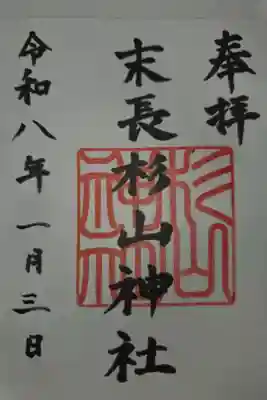 奉拝
末長杉山神社
杉山神社
令和八年一月三日